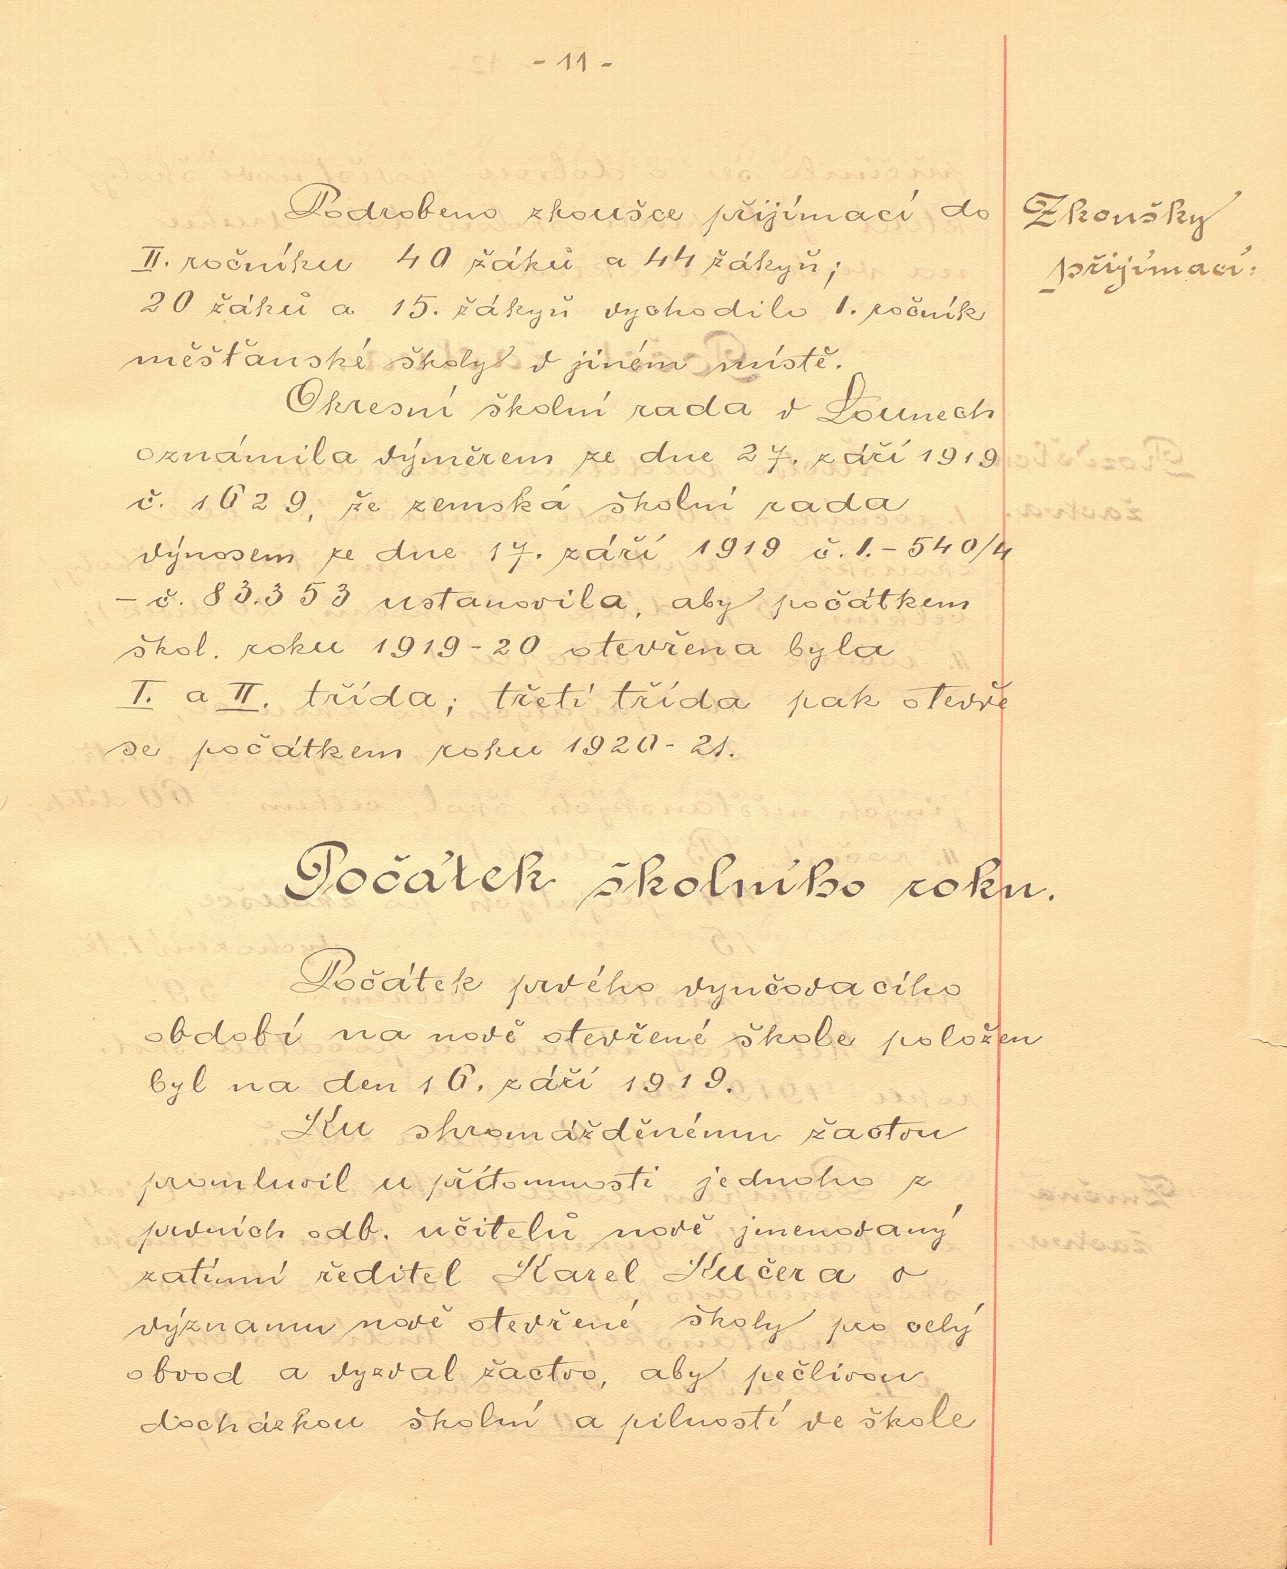 - 11 -
Podrobeno zkoušce přijímací do
II. ročníku 40 žáků a 44 žákyň;
20 žáků a 15. žákyň vychodilo 1. ročník
měšťanské školy v jiném místě.
Zkoušky
přijímací:
Okresní školní rada v Lounech
oznámila výměrem ze dne 27. září 1919
č. 1629, že zemská školní rada
výnosem ze dne 17. září 1919 č. I. - 540/4
- č. 83.353 ustanovila, aby počátkem
škol. roku 1919-20 otevřena byla
I. a II. třída; třetí třída pak otevře
se počátkem roku 1920-21.
Počátek školního roku.
Počátek prvého vyučovacího
období na nově otevřené škole položen
byl na den 16. září 1919.
Ku shromážděnému žactvu
promluvil u přítomnosti jednoho z
prvních odb. učitelů nově jmenovaný
zatímní ředitel Karel Kučera o
významu nově otevřené školy pro celý
obvod a vyzval žactvo, aby pečlivou
docházkou školní a pilností ve škole